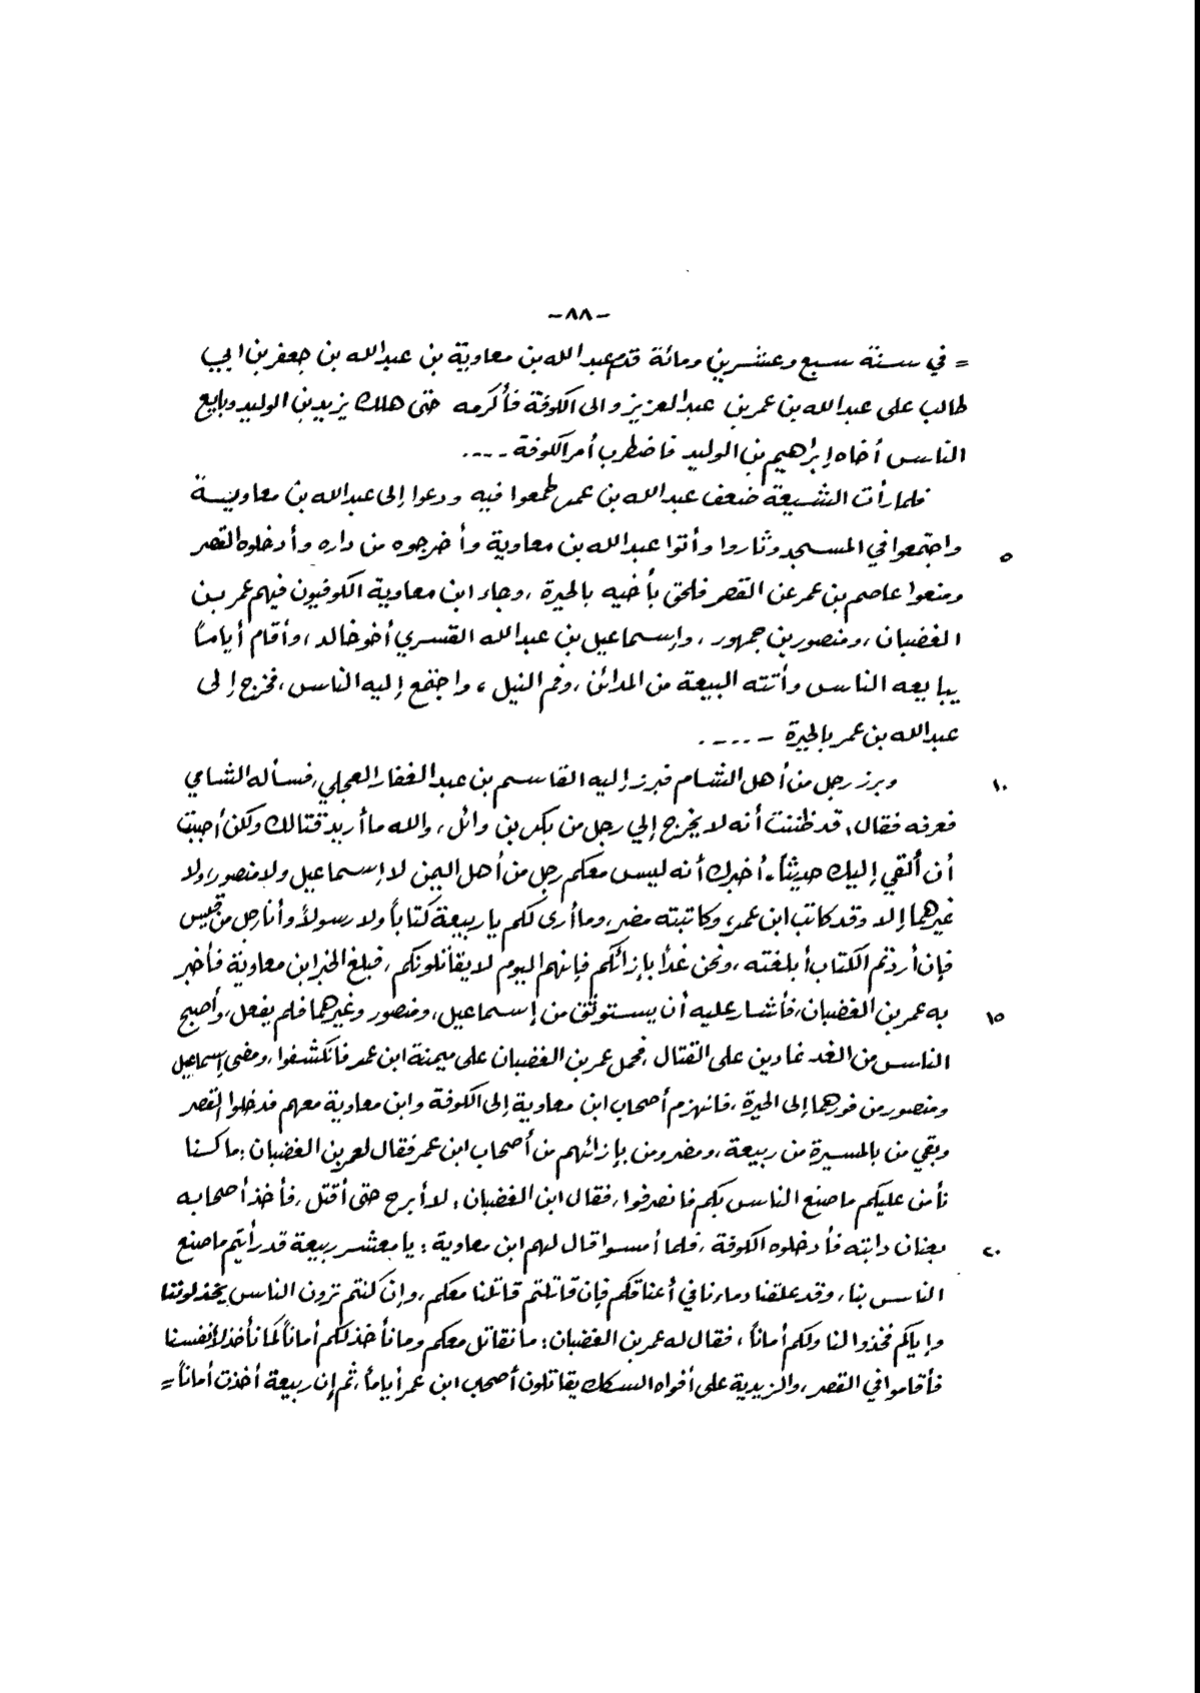 -٨٨-
= في سنة سبع وعشرين ومائة قدم عبدالله بن معاوية بن عبدالله بن جعفر بن ابي
طالب على عبدالله بن عمر بن عبدالعزيز والى الكوفة فأكرمه حتى هلك يزيد بن الوليد وبايع
الناس أخاه إبراهيم بن الوليد فاضطرب أمر الكوفة ....
فلما رأت الشيعة ضعف عبدالله بن عمر طمعوا فيه ودعوا إلى عبدالله بن معاوية
٥ واجتمعوا في المسجد وثاروا وأتوا عبدالله بن معاوية وأخرجوه من داره وأدخلوه القصر
ومنعوا عاصم بن عمر عن القصر فلحق بأخيه بالحيرة ، وجاء ابن معاوية الكوفيون فيهم عمر بن
الغضبان ، ومنصور بن جمهور ، وإسماعيل بن عبدالله القسري أخو خالد ، وأقام أياماً
يبايعه الناس وأتته البيعة من المدائن ، وفم النيل ، واجتمع إليه الناس ، فخرج إلى
عبدالله بن عمر بالحيرة - ....
١٠ وبرز رجل من أهل الشام فبرز إليه القاسم بن عبد الغفار العجلي ، فسأله الشامي
فعرفه فقال ، قد ظننت أنه لا يخرج إلي رجل من بكر بن وائل ، والله ما أريد قتالك ولكن أحببت
أن ألقي إليك حديثاً ، أخبرك أنه ليس معكم رجل من أهل اليمن لا إسماعيل ولا منصور ، ولا
غيرهما إلا وقد كاتب ابن عمر ، وكاتبته مضر ، وما أرى لكم يا ربيعة كتاباً ولا رسولاً وأنا رجل من قيس
فإن أردتم الكتاب أبلغته ، ونحن غداً بإزائكم فإنهم اليوم لا يقاتلونكم ، فبلغ الخبر ابن معاوية فأخبر
١٥ به عمر بن الغضبان ، فأشار عليه أن يستوثق من إسماعيل ، ومنصور وغيرهما فلم يفعل ، وأصبح
الناس من الغد غادين على القتال ، فحمل عمر بن الغضبان على ميمنة ابن عمر فانكشفوا ، ومضى إسماعيل
ومنصور من فورهما إلى الحيرة ، فانهزم أصحاب ابن معاوية إلى الكوفة وابن معاوية معهم فدخلوا القصر
وبقي من بالميسرة من ربيعة ، ومضر ومن بإزائهم من أصحاب ابن عمر فقال لعمر بن الغضبان : ما كنا
نأمن عليكم ما صنع الناس بكم فانصرفوا ، فقال ابن الغضبان : لا أبرح حتى أقتل ، فأخذ أصحابه
٢٠ بعنان دابته فأدخلوه الكوفة ، فلما أمسوا قال لهم ابن معاوية : يا معشر ربيعة قد رأيتم ما صنع
الناس بنا ، وقد علقنا دماءنا في أعناقكم فإن قاتلتم قاتلنا معكم ، وإن كنتم ترون الناس يخذلوننا
وإياكم فخذوا لنا ولكم أماناً ، فقال له عمر بن الغضبان : ما نقاتل معكم وما نأخذ لكم أماناً كما نأخذ لأنفسنا
فأقاموا في القصر ، والزيدية على أفواه السكك يقاتلون أصحاب ابن عمر أياماً ، ثم إن ربيعة أخذت أماناً =